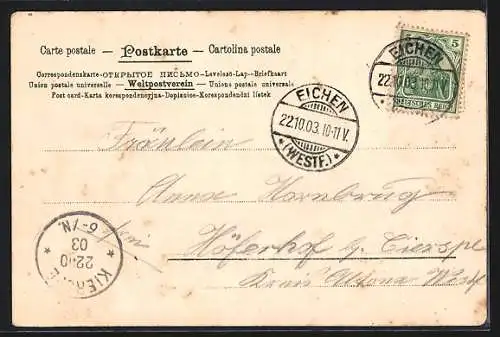 Carte postale — Postkarte — Cartolina postale
Correspondenskarte-ОТКРЫТОЕ ПИСЬМО-Levelező-Lap-Briefkaart
Union postale universelle — Weltpostverein — Unione postale universale
Post card-Karta korespondencyjna-Dopisnice-Korespondenční lístek
5
EICHEN
22.10.03
EICHEN
22.10.03.10-11V.
*(WESTF.)*
Fräulein
Anna Hornbrug
Höferhof
Kreis Altona Westf
22-10
03
6-7N.